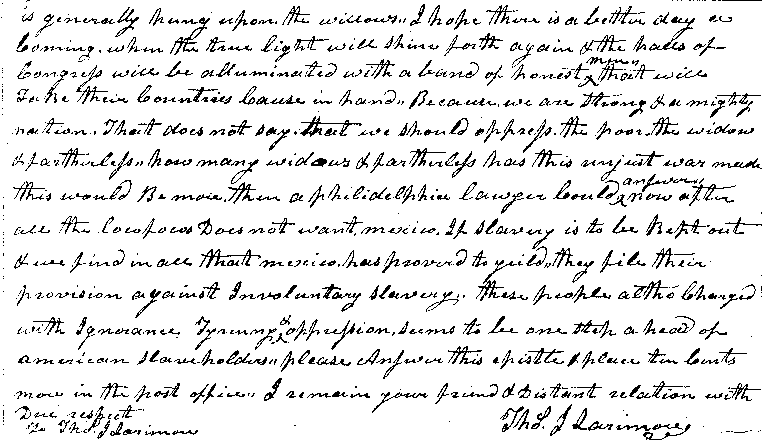 is generally hung upon the willows,, I hope there is a better day a
Coming. when the true light will shine forth again & the halls of
Congress will be alluminated with a band of honest men,, that will
Take their Countries Cause in hand,, Because, we are strong & a mighty
nation. That does not say. that we should oppress. the poor. the widow
& fartherless,, how many widows & fartherless has this unjust war made
this would Be more, then a philidelphia lawyer Could answer,, now after
all the locofocos Does not want, mexico, If slavery is to be Kept out
& we find in all that mexico. has proverd to yuild,, they file their
provision against Involuntary slavery,. these people altho Charged
with Ignorance, Tyrrung & oppression, seems to be one step a head of
american slaveholders,, please Answer this epistle & place ten Cents
more in the post office,, I remain your friend & Distant relation with
Due respect
To Tho.s J Larimore
Tho.s J Larimore